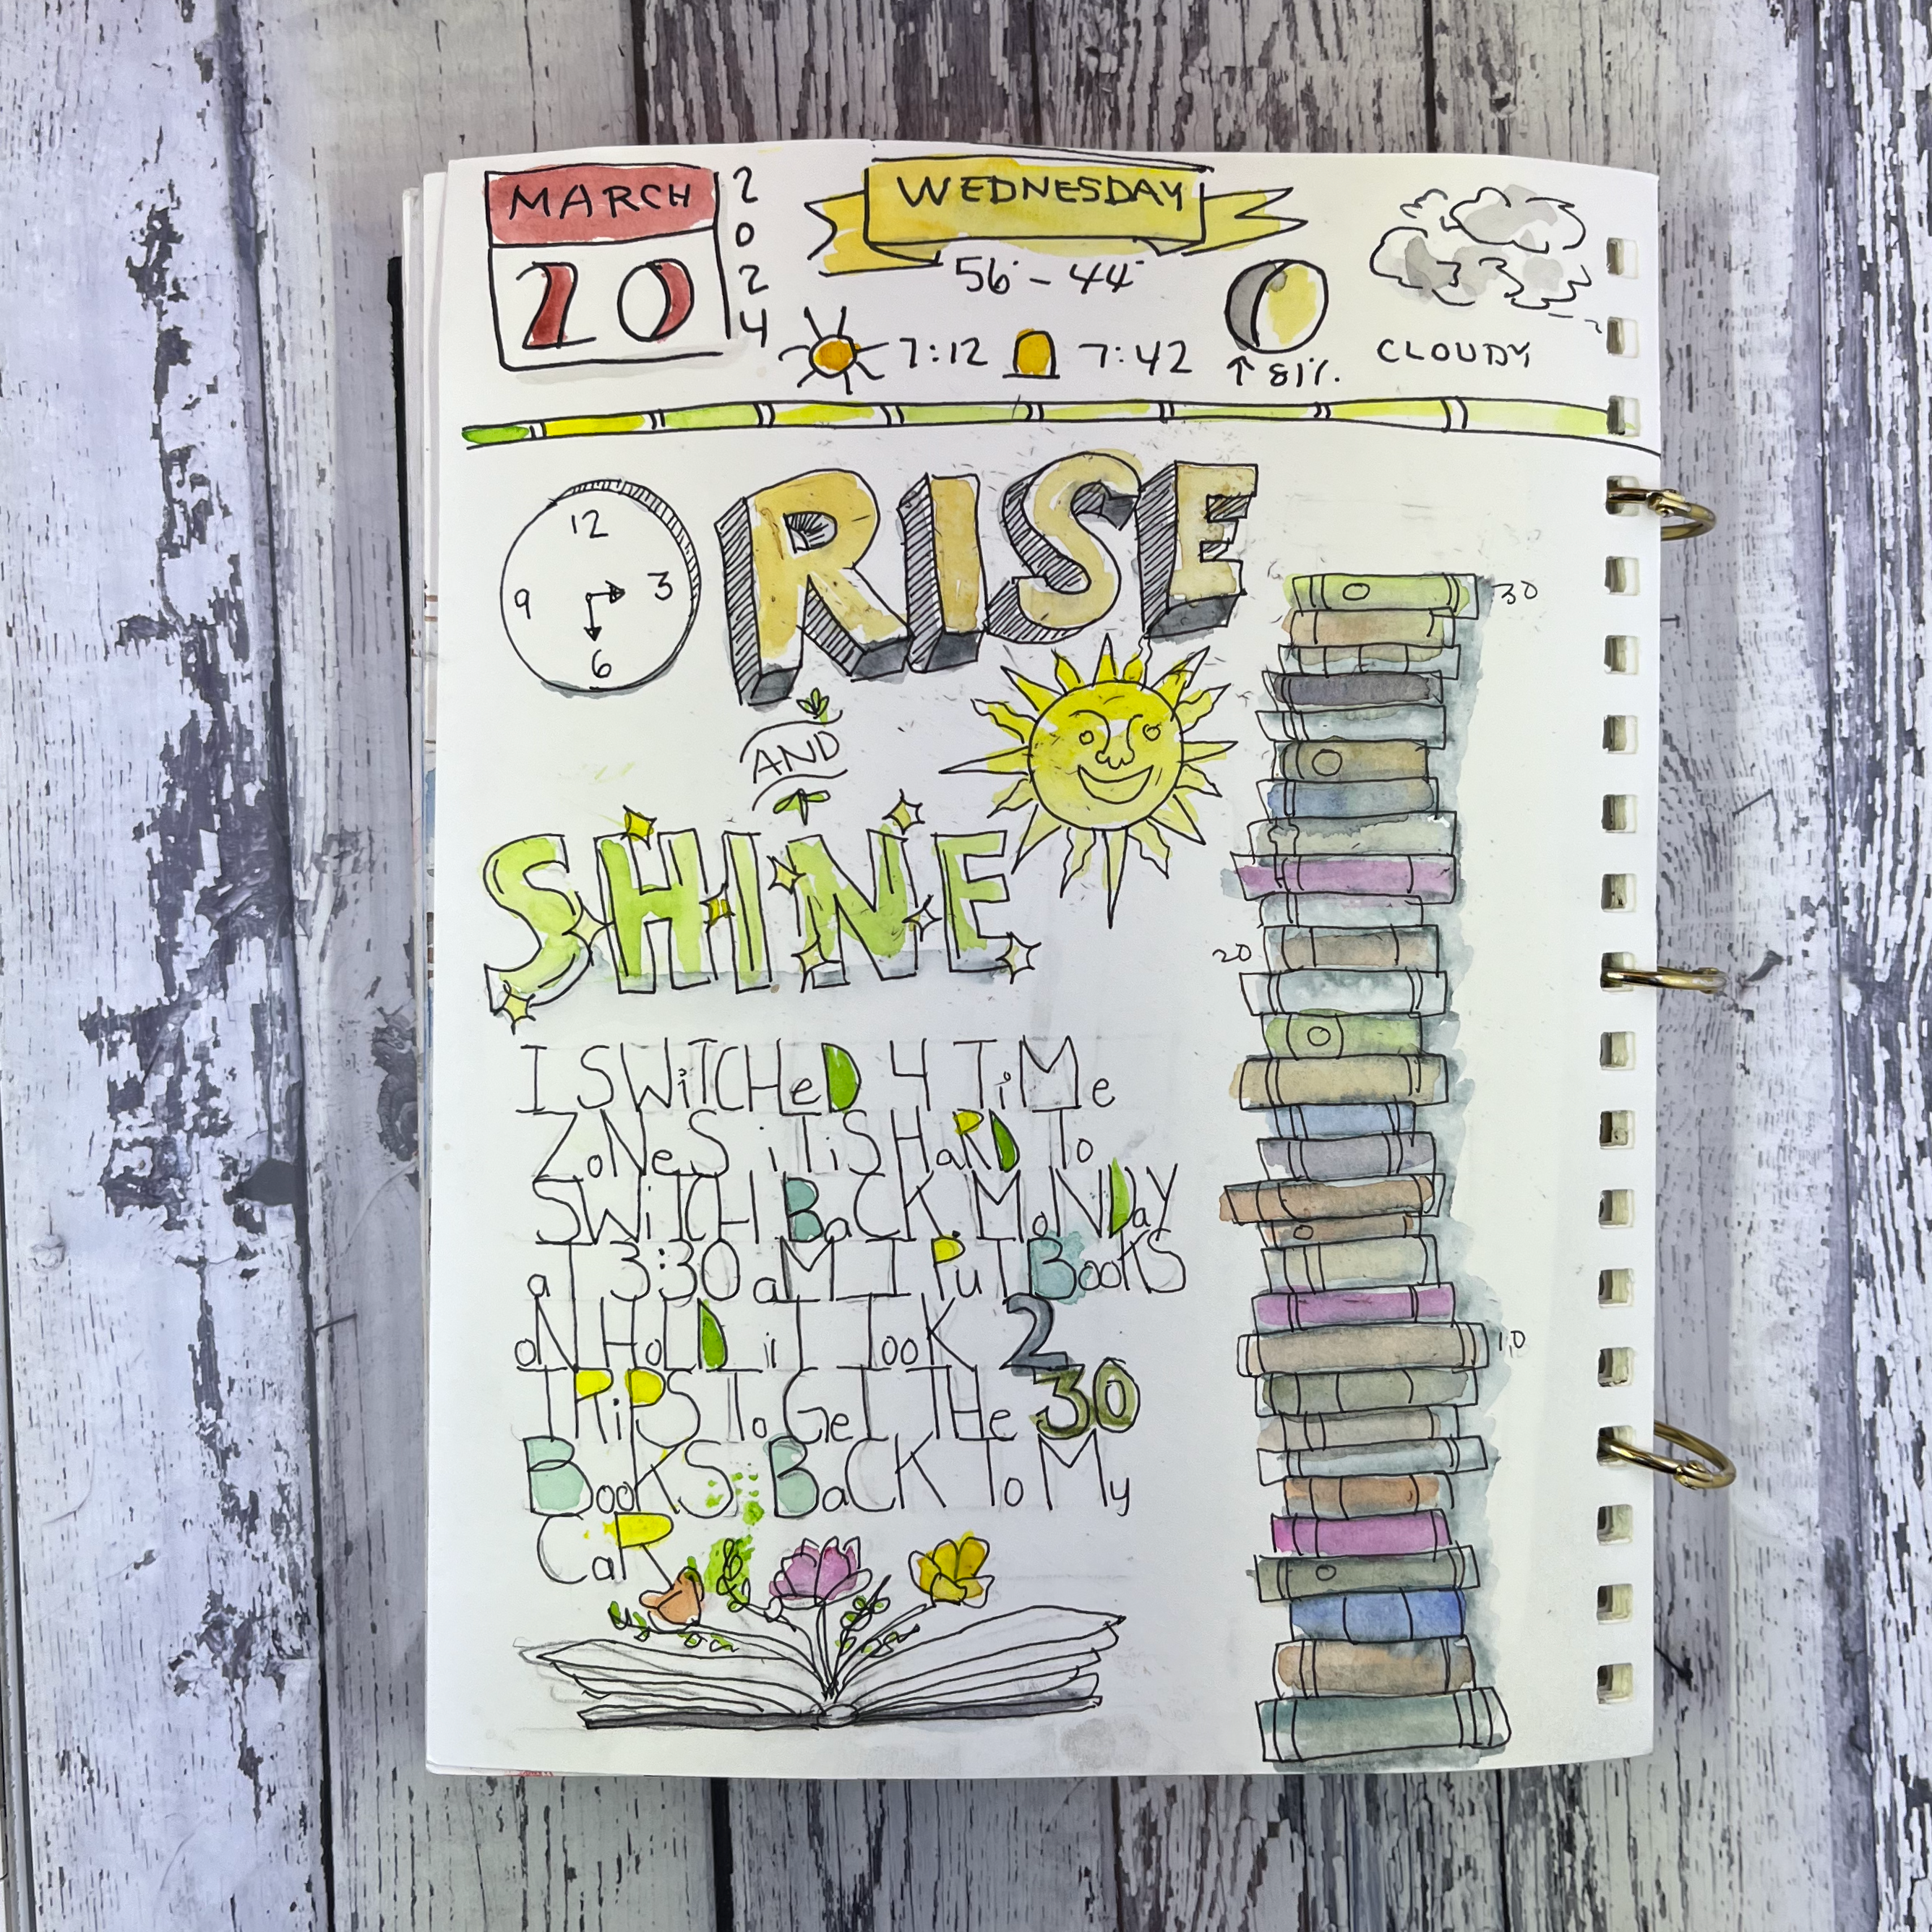 MARCH
20
2024
WEDNESDAY
56° - 44°
7:12 7:42
↑ 81%.
CLOUDY
12
3
6
9
RISE
AND
SHINE
I SWiTCHeD 4 TiMe
ZoNeS iT iS HaRD To
SWiTCH BaCK. MoNDay
aT 3:30 aM I PuT BooKS
oN HoLD iT TooK 2
TRiPS To GeT THe 30
BooKS BaCK To My
CaR
30
20
10